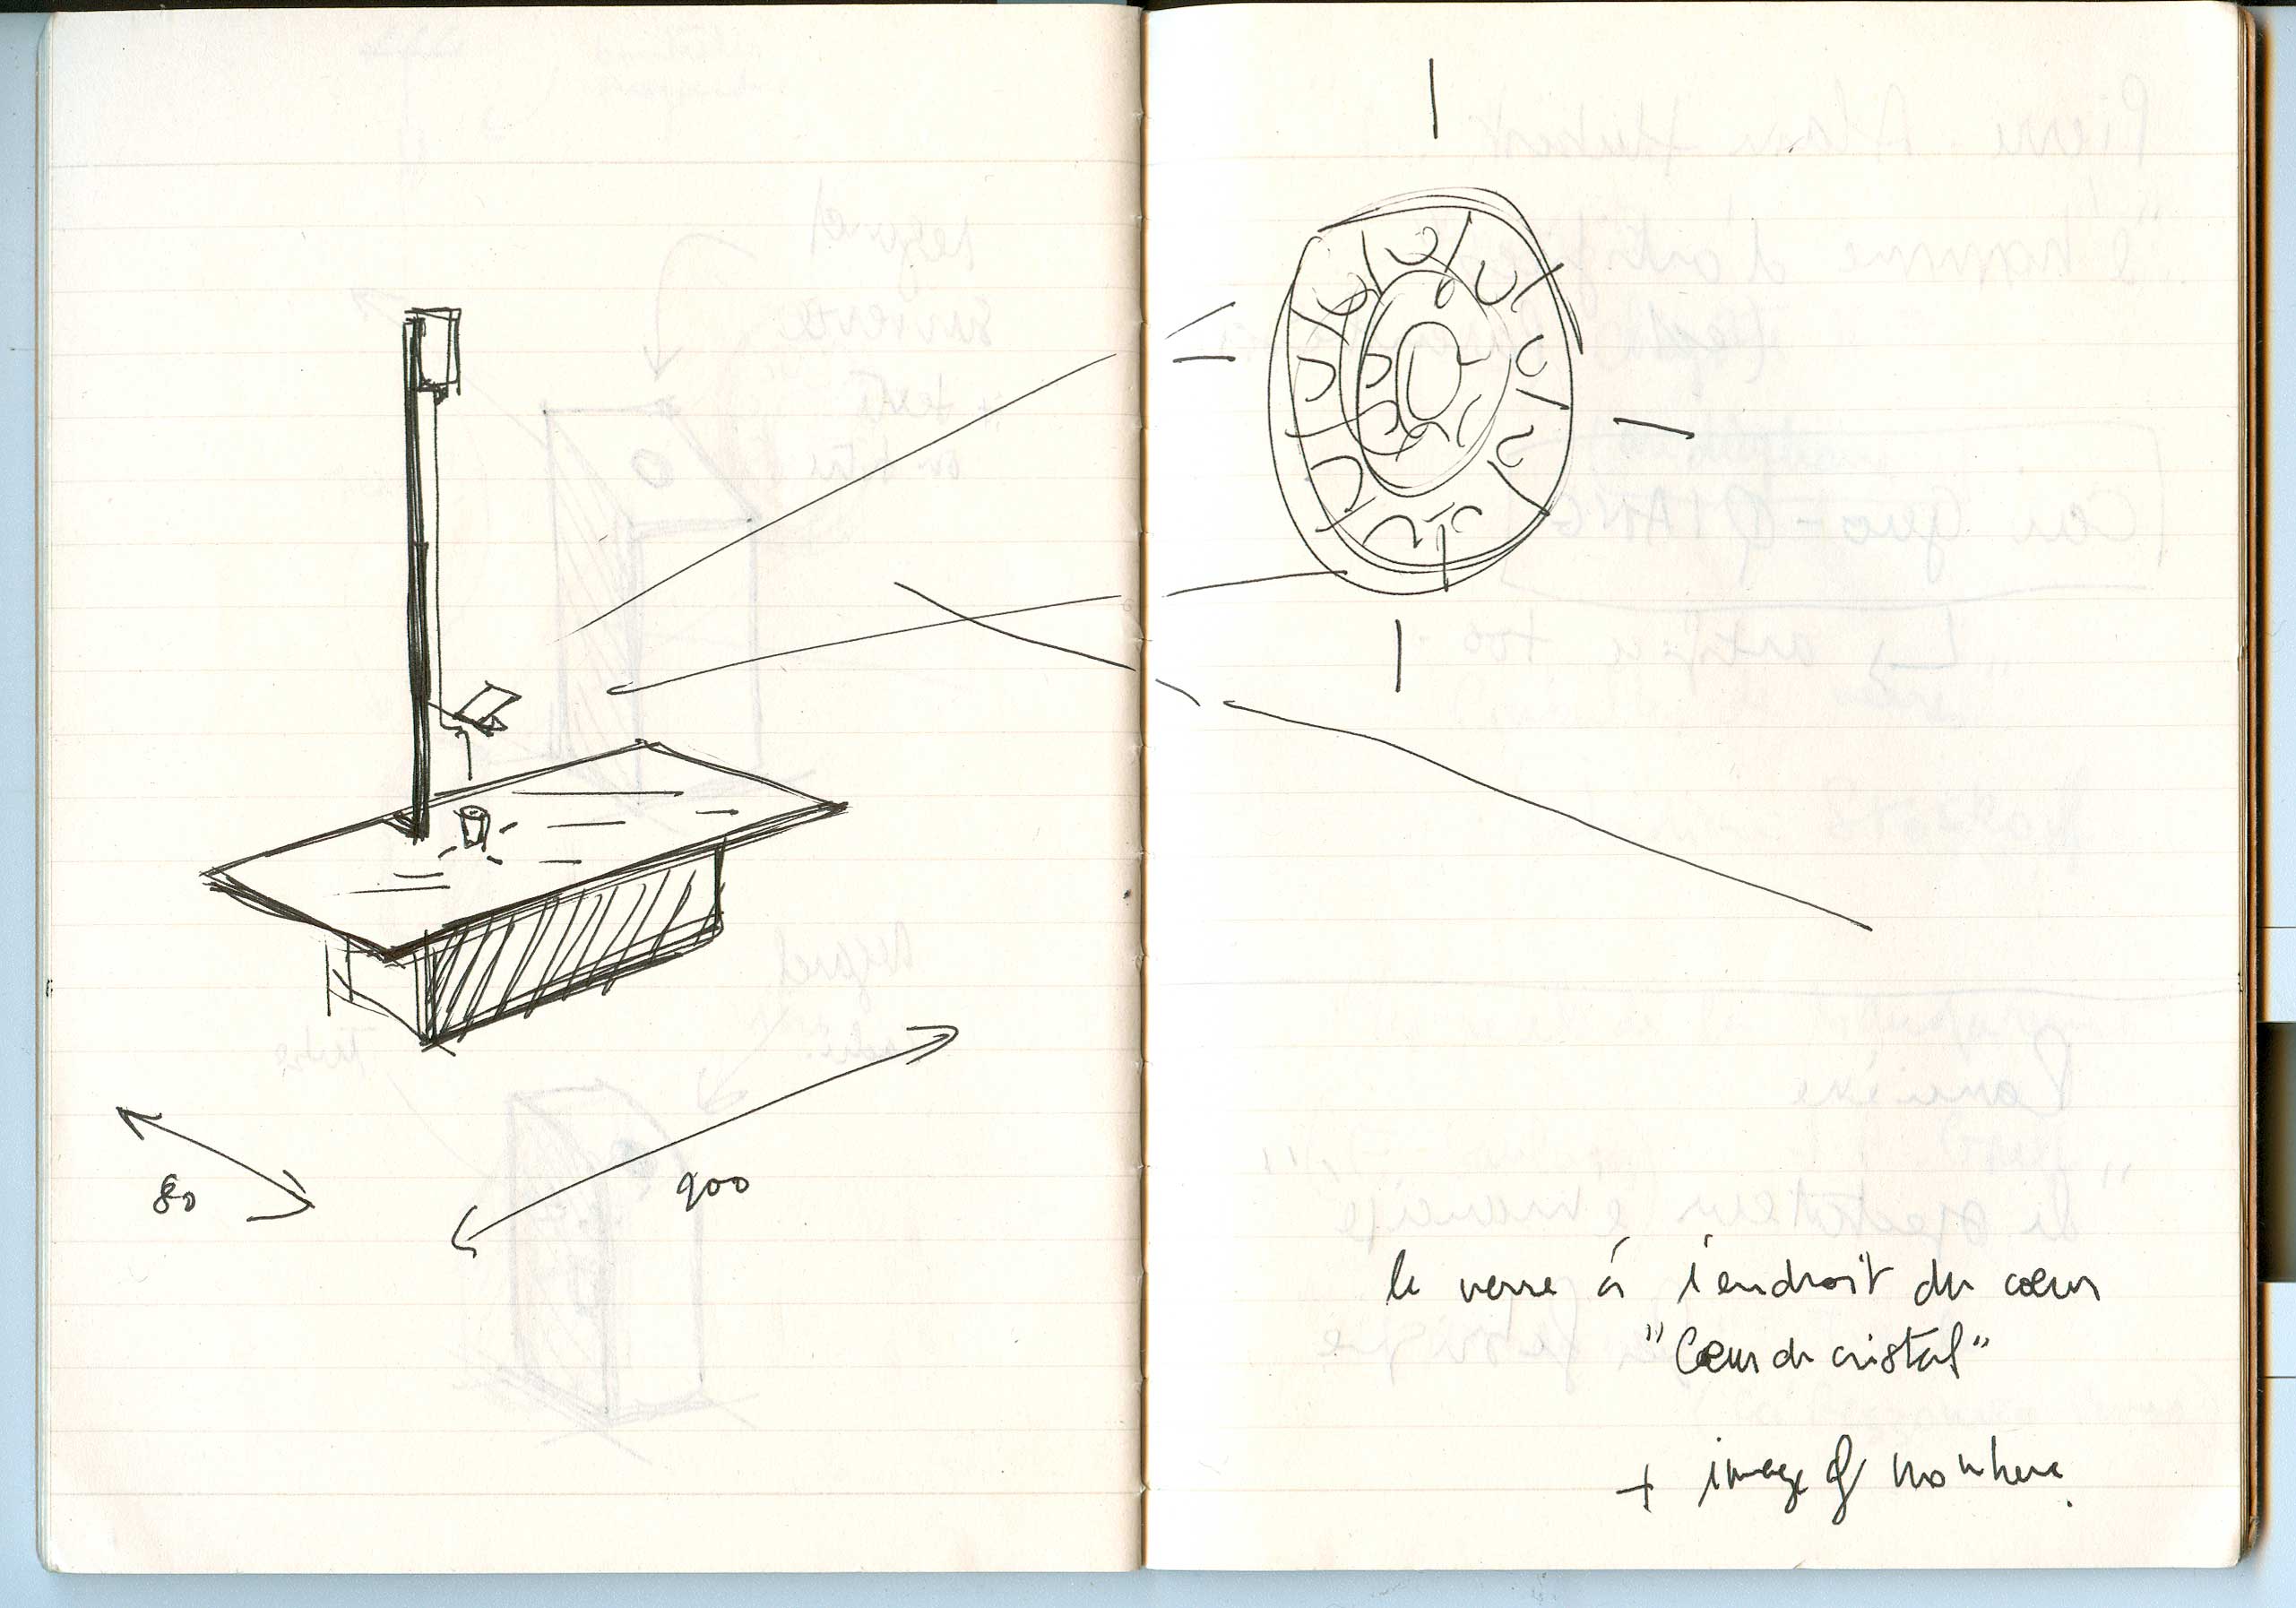 80
900
le verre à l'endroit du cœur
"Cœur de cristal"
+ image of nowhere.